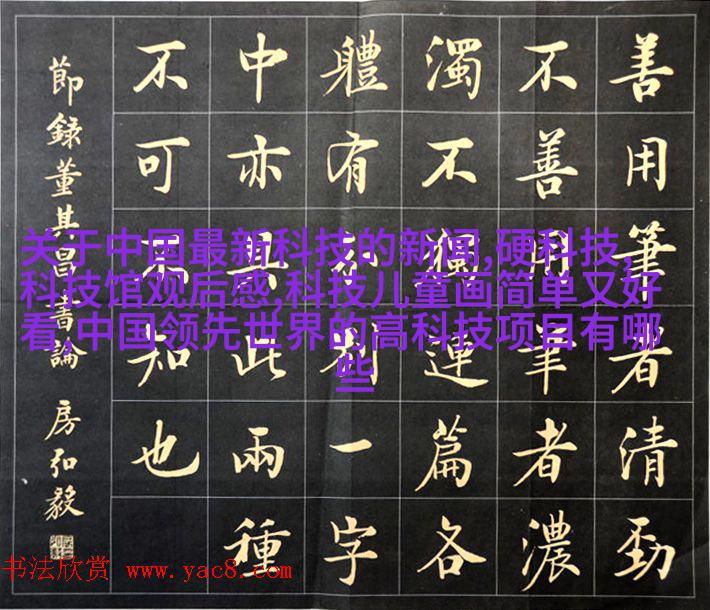 善用筆者清勁
不善用筆者濃
濁不獨連篇各
體有分別一字
中亦具此兩種
不可不知也
節錄董其昌書論 房弘毅
关于中国最新科技的新闻,硬科技,
科技馆观后感,科技儿童画简单又好
看,中国领先世界的高科技项目有哪
些
书法欣赏 www.yac8.com